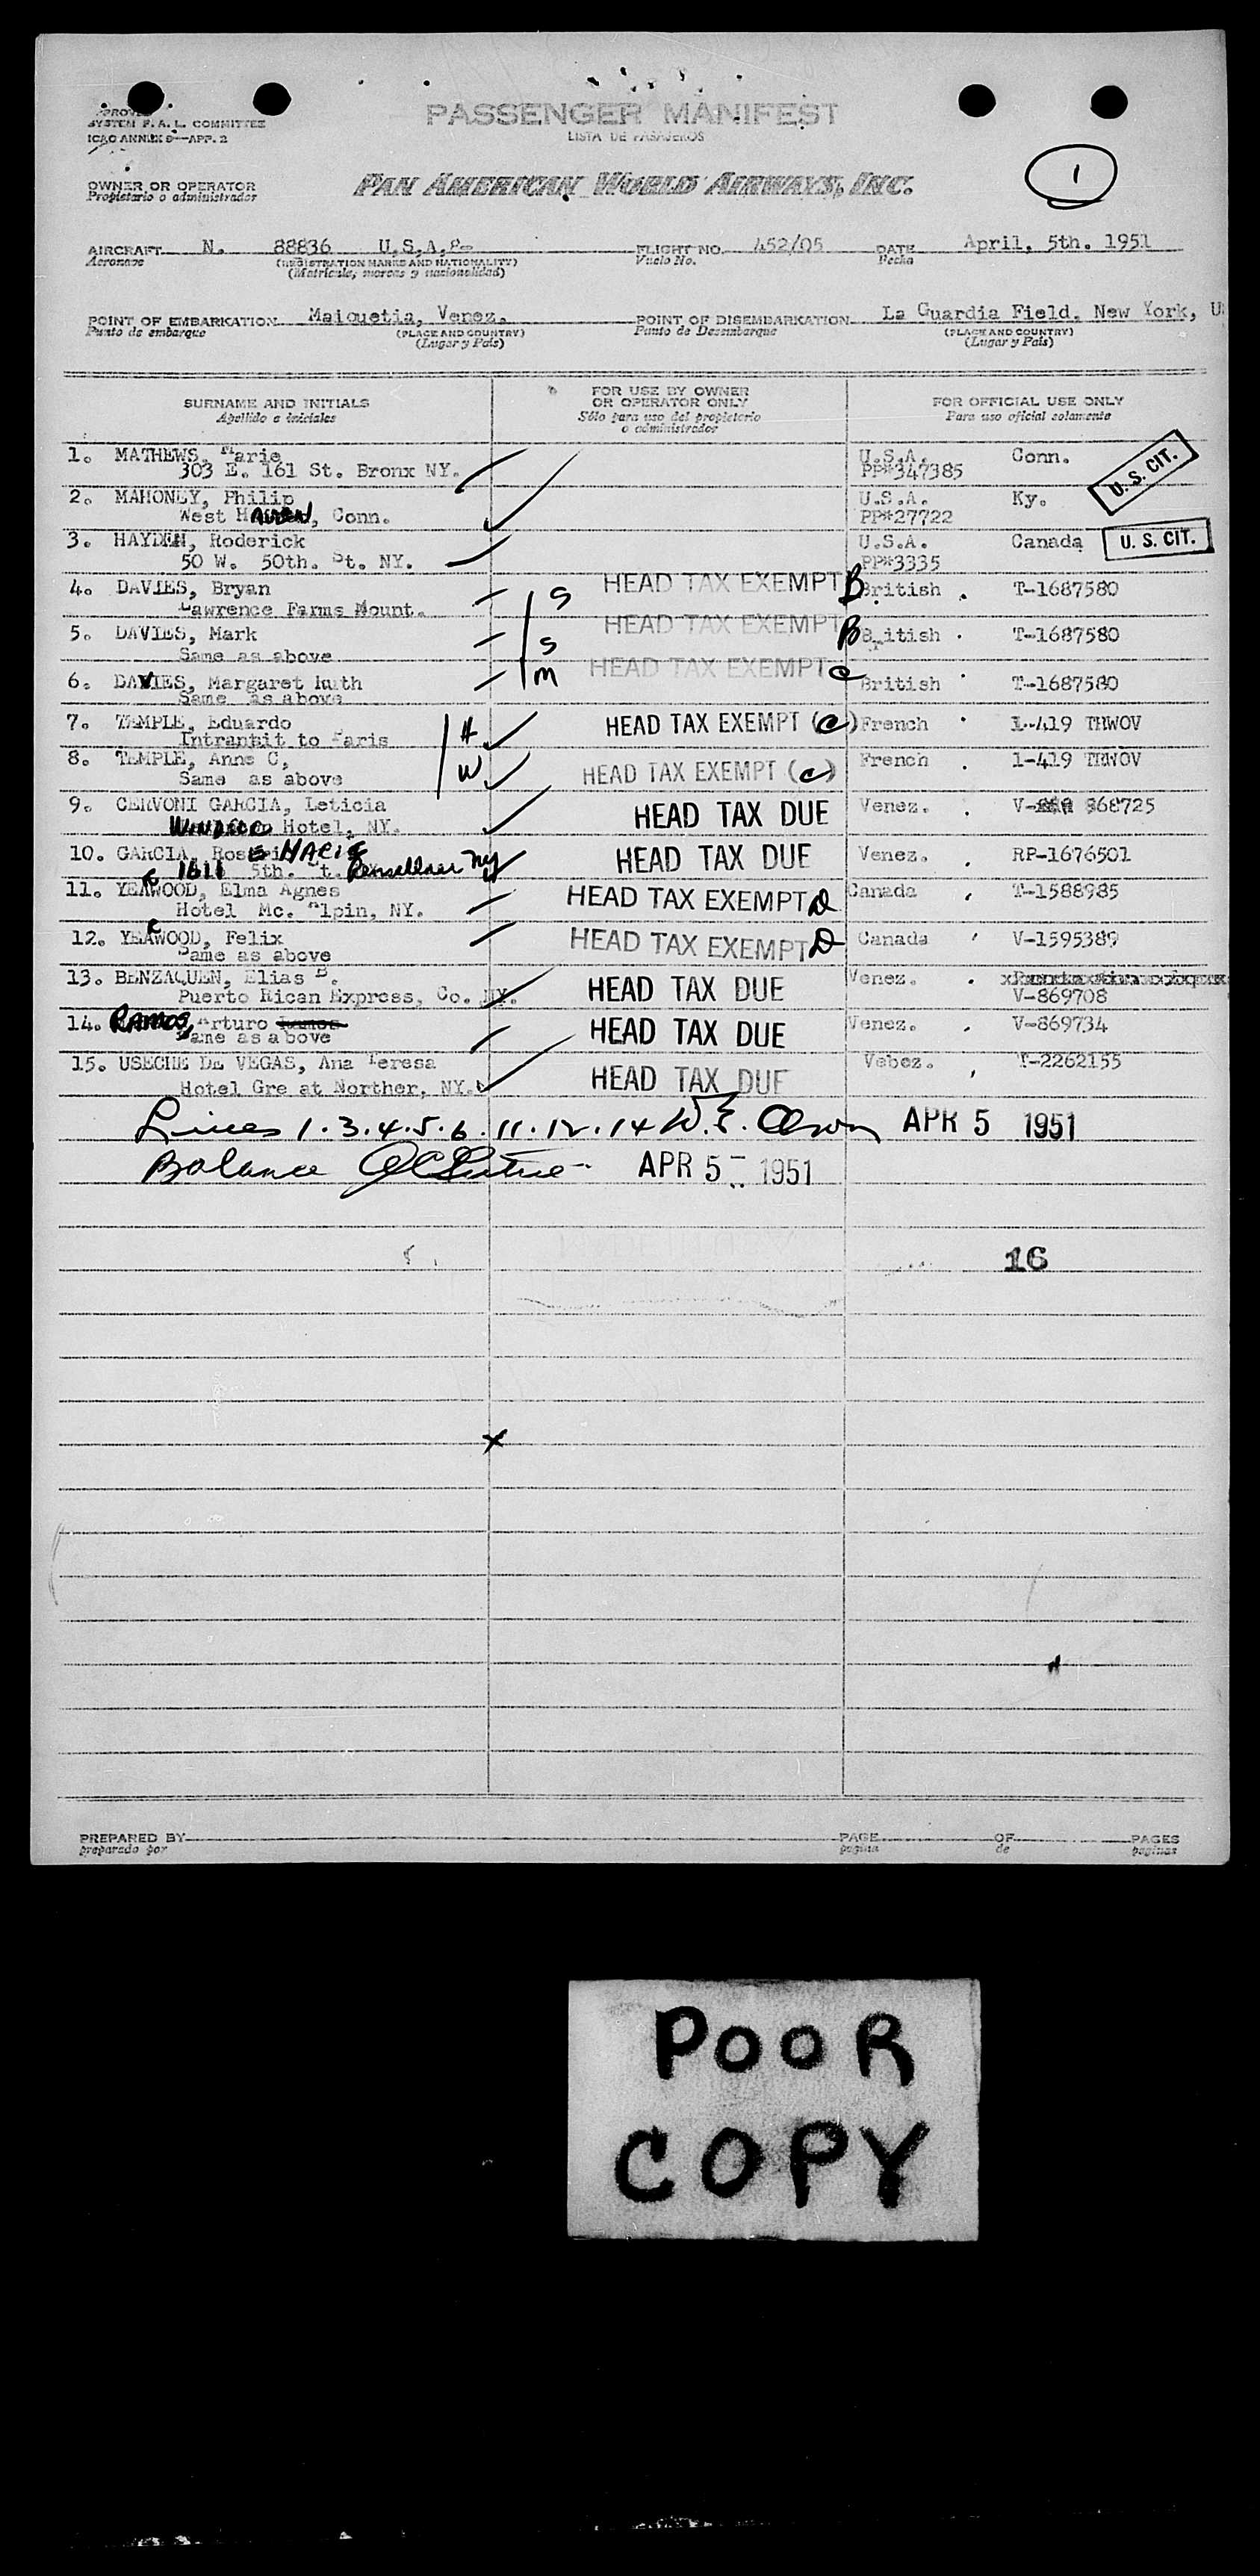 APPROVED
SYSTEM F. A. L. COMMITTEE
ICAO ANNEX 9—APP. 2
PASSENGER MANIFEST
LISTA DE PASAJEROS
1
OWNER OR OPERATOR
Propietario o administrador
PAN AMERICAN WORLD AIRWAYS, INC.
AIRCRAFT N. 88836 U.S.A. FLIGHT NO. 452/05 DATE April, 5th. 1951
Aeronave (REGISTRATION MARKS AND NATIONALITY) Vuelo No. Fecha
(Matricula, marcas y nacionalidad)
POINT OF EMBARKATION Maiquetia, Venez. POINT OF DISEMBARKATION La Guardia Field, New York, U
Punto de embarque (PLACE AND COUNTRY) Punto de Desembarque (PLACE AND COUNTRY)
(Lugar y Pais) (Lugar y Pais)
SURNAME AND INITIALS FOR USE BY OWNER OR OPERATOR ONLY FOR OFFICIAL USE ONLY
Apellido e iniciales Sólo para uso del propietario o administrador Para uso oficial solamente
1. MATHEWS, Marie U.S.A. Conn. U. S. CIT.
303 E. 161 St. Bronx NY. PP#347385
2. MAHONEY, Philip U.S.A. Ky.
West HAVEN, Conn. PP#27722
3. HAYDEN, Roderick U.S.A. Canada U. S. CIT.
50 W. 50th. St. NY. PP#3335
4. DAVIES, Bryan S HEAD TAX EXEMPT B British T-1687580
Lawrence Farms Mount.
5. DAVIES, Mark S HEAD TAX EXEMPT B British T-1687580
Same as above
6. DAVIES, Margaret Ruth M HEAD TAX EXEMPT C British T-1687580
Same as above
7. TEMPLE, Eduardo H HEAD TAX EXEMPT (C) French 1-419 TRWOV
Intranbit to Paris
8. TEMPLE, Anne C, W HEAD TAX EXEMPT (C) French 1-419 TRWOV
Same as above
9. CERVONI GARCIA, Leticia HEAD TAX DUE Venez. V- 868725
WINDSOR Hotel, NY.
10. GARCIA, Rose MARIE HEAD TAX DUE Venez. RP-1676501
1611 5th. t. Rensellaer NY
11. YEARWOOD, Elma Agnes HEAD TAX EXEMPT D Canada T-1588985
Hotel Mc. Alpin, NY.
12. YEARWOOD, Felix HEAD TAX EXEMPT D Canada V-1595389
Same as above
13. BENZAQUEN, Elias B. HEAD TAX DUE Venez.
Puerto Rican Express, Co. NY. V-869708
14. RAMOS, Arturo Ramos HEAD TAX DUE Venez. V-869734
Same as above
15. USECHE De VEGAS, Ana Teresa HEAD TAX DUE Vebez. T-2262155
Hotel Gre at Norther, NY.
Lines 1.3.4.5.6.11.12.14 W.E. Olson APR 5 1951
Balance APR 5 1951
16
x
PREPARED BY PAGE OF PAGES
preparado por pagina de paginas
POOR
COPY